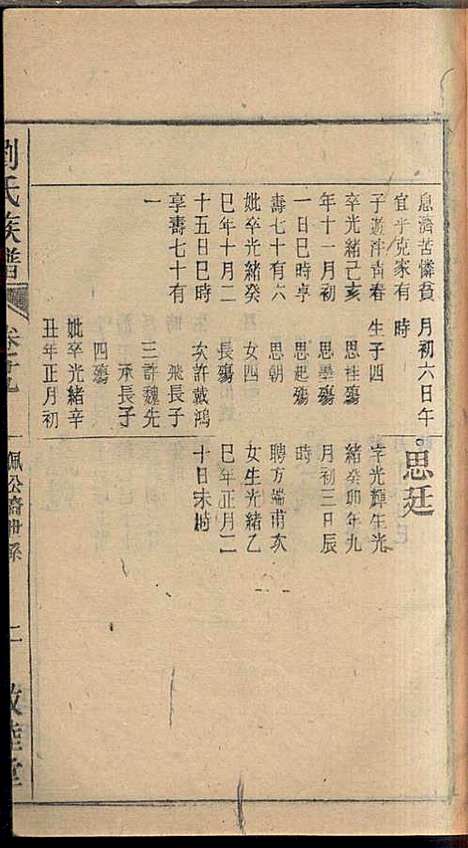 息濟苦憐貧
宜乎克家有
子遊泮青春
卒光緒己亥
年十一月初
一日巳時享
壽七十有六
妣卒光緒癸
巳年十月二
十五日巳時
享壽七十有
一
月初六日午
時
生子四
思桂殤
思墨殤
思起殤
思朝
女四
長殤
次許戴鴻
飛長子
三許魏先
承長子
四殤
妣卒光緒辛
丑年正月初
思廷
字光輝生光
緒癸卯年九
月初三日辰
時
聘方端甫次
女生光緒乙
巳年正月二
十日未時
劉氏族譜
卷
佩公裔
系
二
敦睦堂